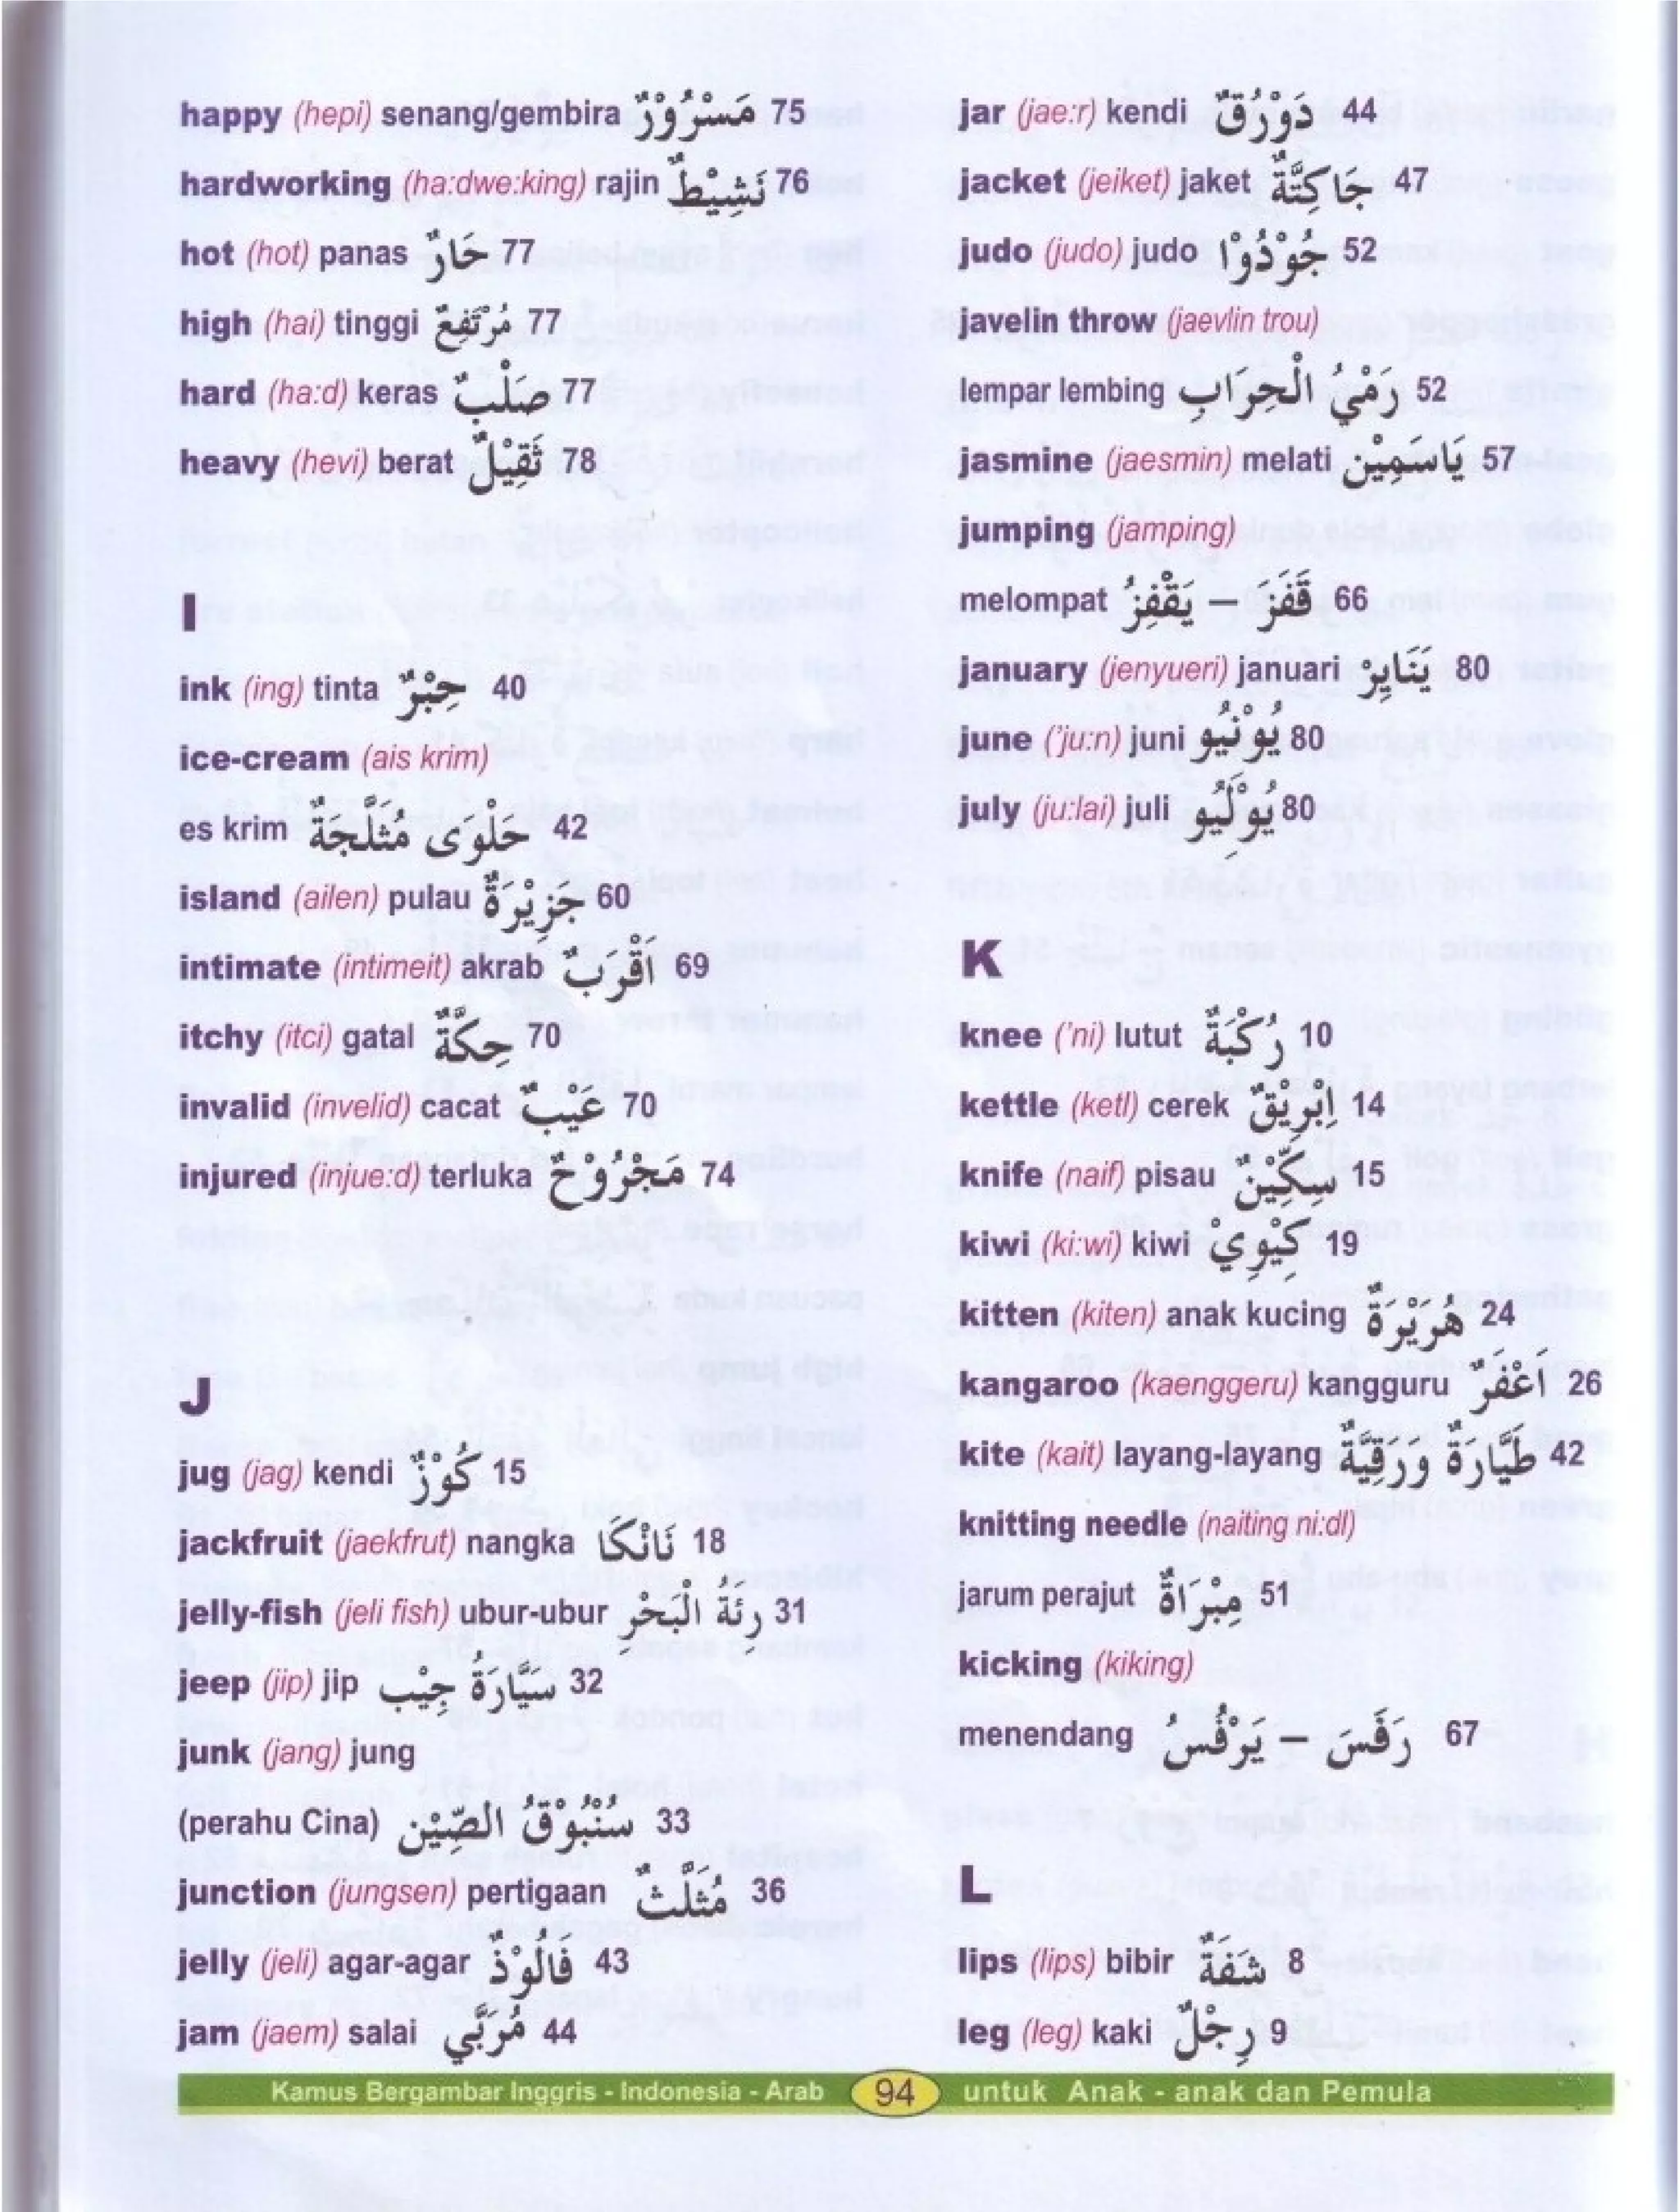 happy (hepi) senang/gembira مَسْرُوْرٌ 75
hardworking (ha:dwe:king) rajin نَشِيْطٌ 76
hot (hot) panas حَارٌ 77
high (hai) tinggi مُرْتَفِعٌ 77
hard (ha:d) keras صَلْبٌ 77
heavy (hevi) berat ثَقِيْلٌ 78
I
ink (ing) tinta حِبْرٌ 40
ice-cream (ais krim)
es krim حَلْوَى مُثَلَّجَةٌ 42
island (ailen) pulau جَزِيْرَةٌ 60
intimate (intimeit) akrab اَقْرَبٌ 69
itchy (itci) gatal حِكَّةٌ 70
invalid (invelid) cacat عَيْبٌ 70
injured (injue:d) terluka مَجْرُوْحٌ 74
J
jug (jag) kendi كُوْزٌ 15
jackfruit (jaekfrut) nangka نَانْكَا 18
jelly-fish (jeli fish) ubur-ubur رِئَةُ الْبَحْرِ 31
jeep (jip) jip سَيَّارَةُ جِيْب 32
junk (jang) jung
(perahu Cina) سُنْبُوْقُ الصِّيْنِ 33
junction (jungsen) pertigaan مُثَلَّثٌ 36
jelly (jeli) agar-agar فَالُوْذٌ 43
jam (jaem) salai مُرَبَّي 44
jar (jae:r) kendi دَوْرَقٌ 44
jacket (jeiket) jaket جَاكِتَّةٌ 47
judo (judo) judo جُوْدُوْا 52
javelin throw (jaevlin trou)
lempar lembing رَمْيُ الْحِرَابِ 52
jasmine (jaesmin) melati يَاسَمِيْن 57
jumping (jamping)
melompat قَفَزَ – يَقْفِزُ 66
january (jenyueri) januari يَنَايِرْ 80
june ('ju:n) juni يُوْنْيُو 80
july (ju:lai) juli يُولِيُو 80
K
knee ('ni) lutut رُكْبَةٌ 10
kettle (ketl) cerek اِبْرِيْقٌ 14
knife (naif) pisau سِكِّيْنٌ 15
kiwi (ki:wi) kiwi كِيْوِيْ 19
kitten (kiten) anak kucing هُرَيْرَةٌ 24
kangaroo (kaenggeru) kangguru اَعْفَرٌ 26
kite (kait) layang-layang طَيَّارَةٌ وَرَقِيَّةٌ 42
knitting needle (naiting ni:dl)
jarum perajut مِبْرَاةٌ 51
kicking (kiking)
menendang رَفَسَ – يَرْفُسُ 67
L
lips (lips) bibir شَفَةٌ 8
leg (leg) kaki رِجْلٌ 9
Kamus Bergambar Inggris - Indonesia - Arab 94 untuk Anak - anak dan Pemula